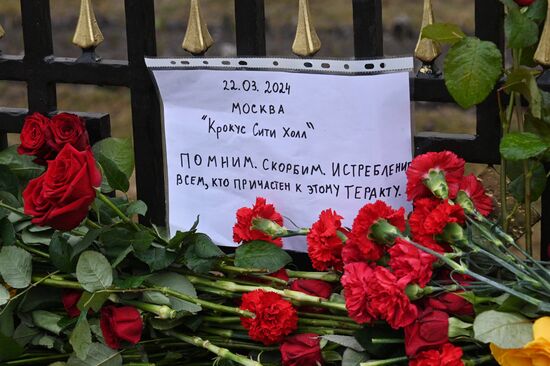 22.03.2024
МОСКВА
"Крокус Сити Холл"
ПОМНИМ. СКОРБИМ. ИСТРЕБЛЕНИЕ
ВСЕМ, КТО ПРИЧАСТЕН К ЭТОМУ ТЕРАКТУ.